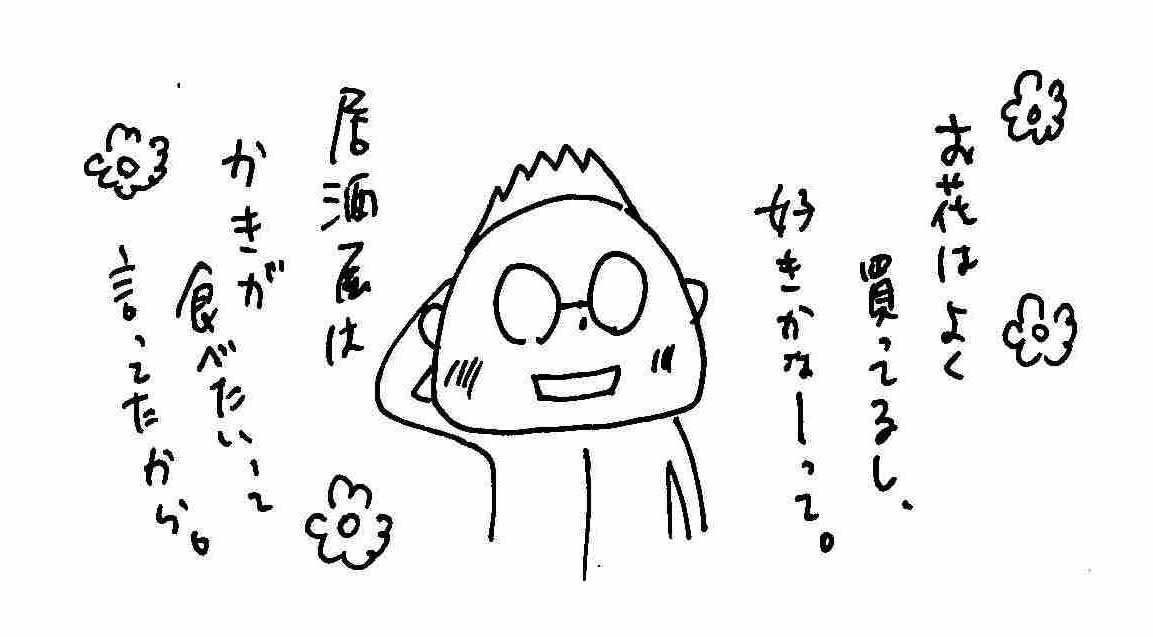 お花はよく
買ってるし、
好きかなーって。
居酒屋は
かきが
食べたいって
言ってたから。